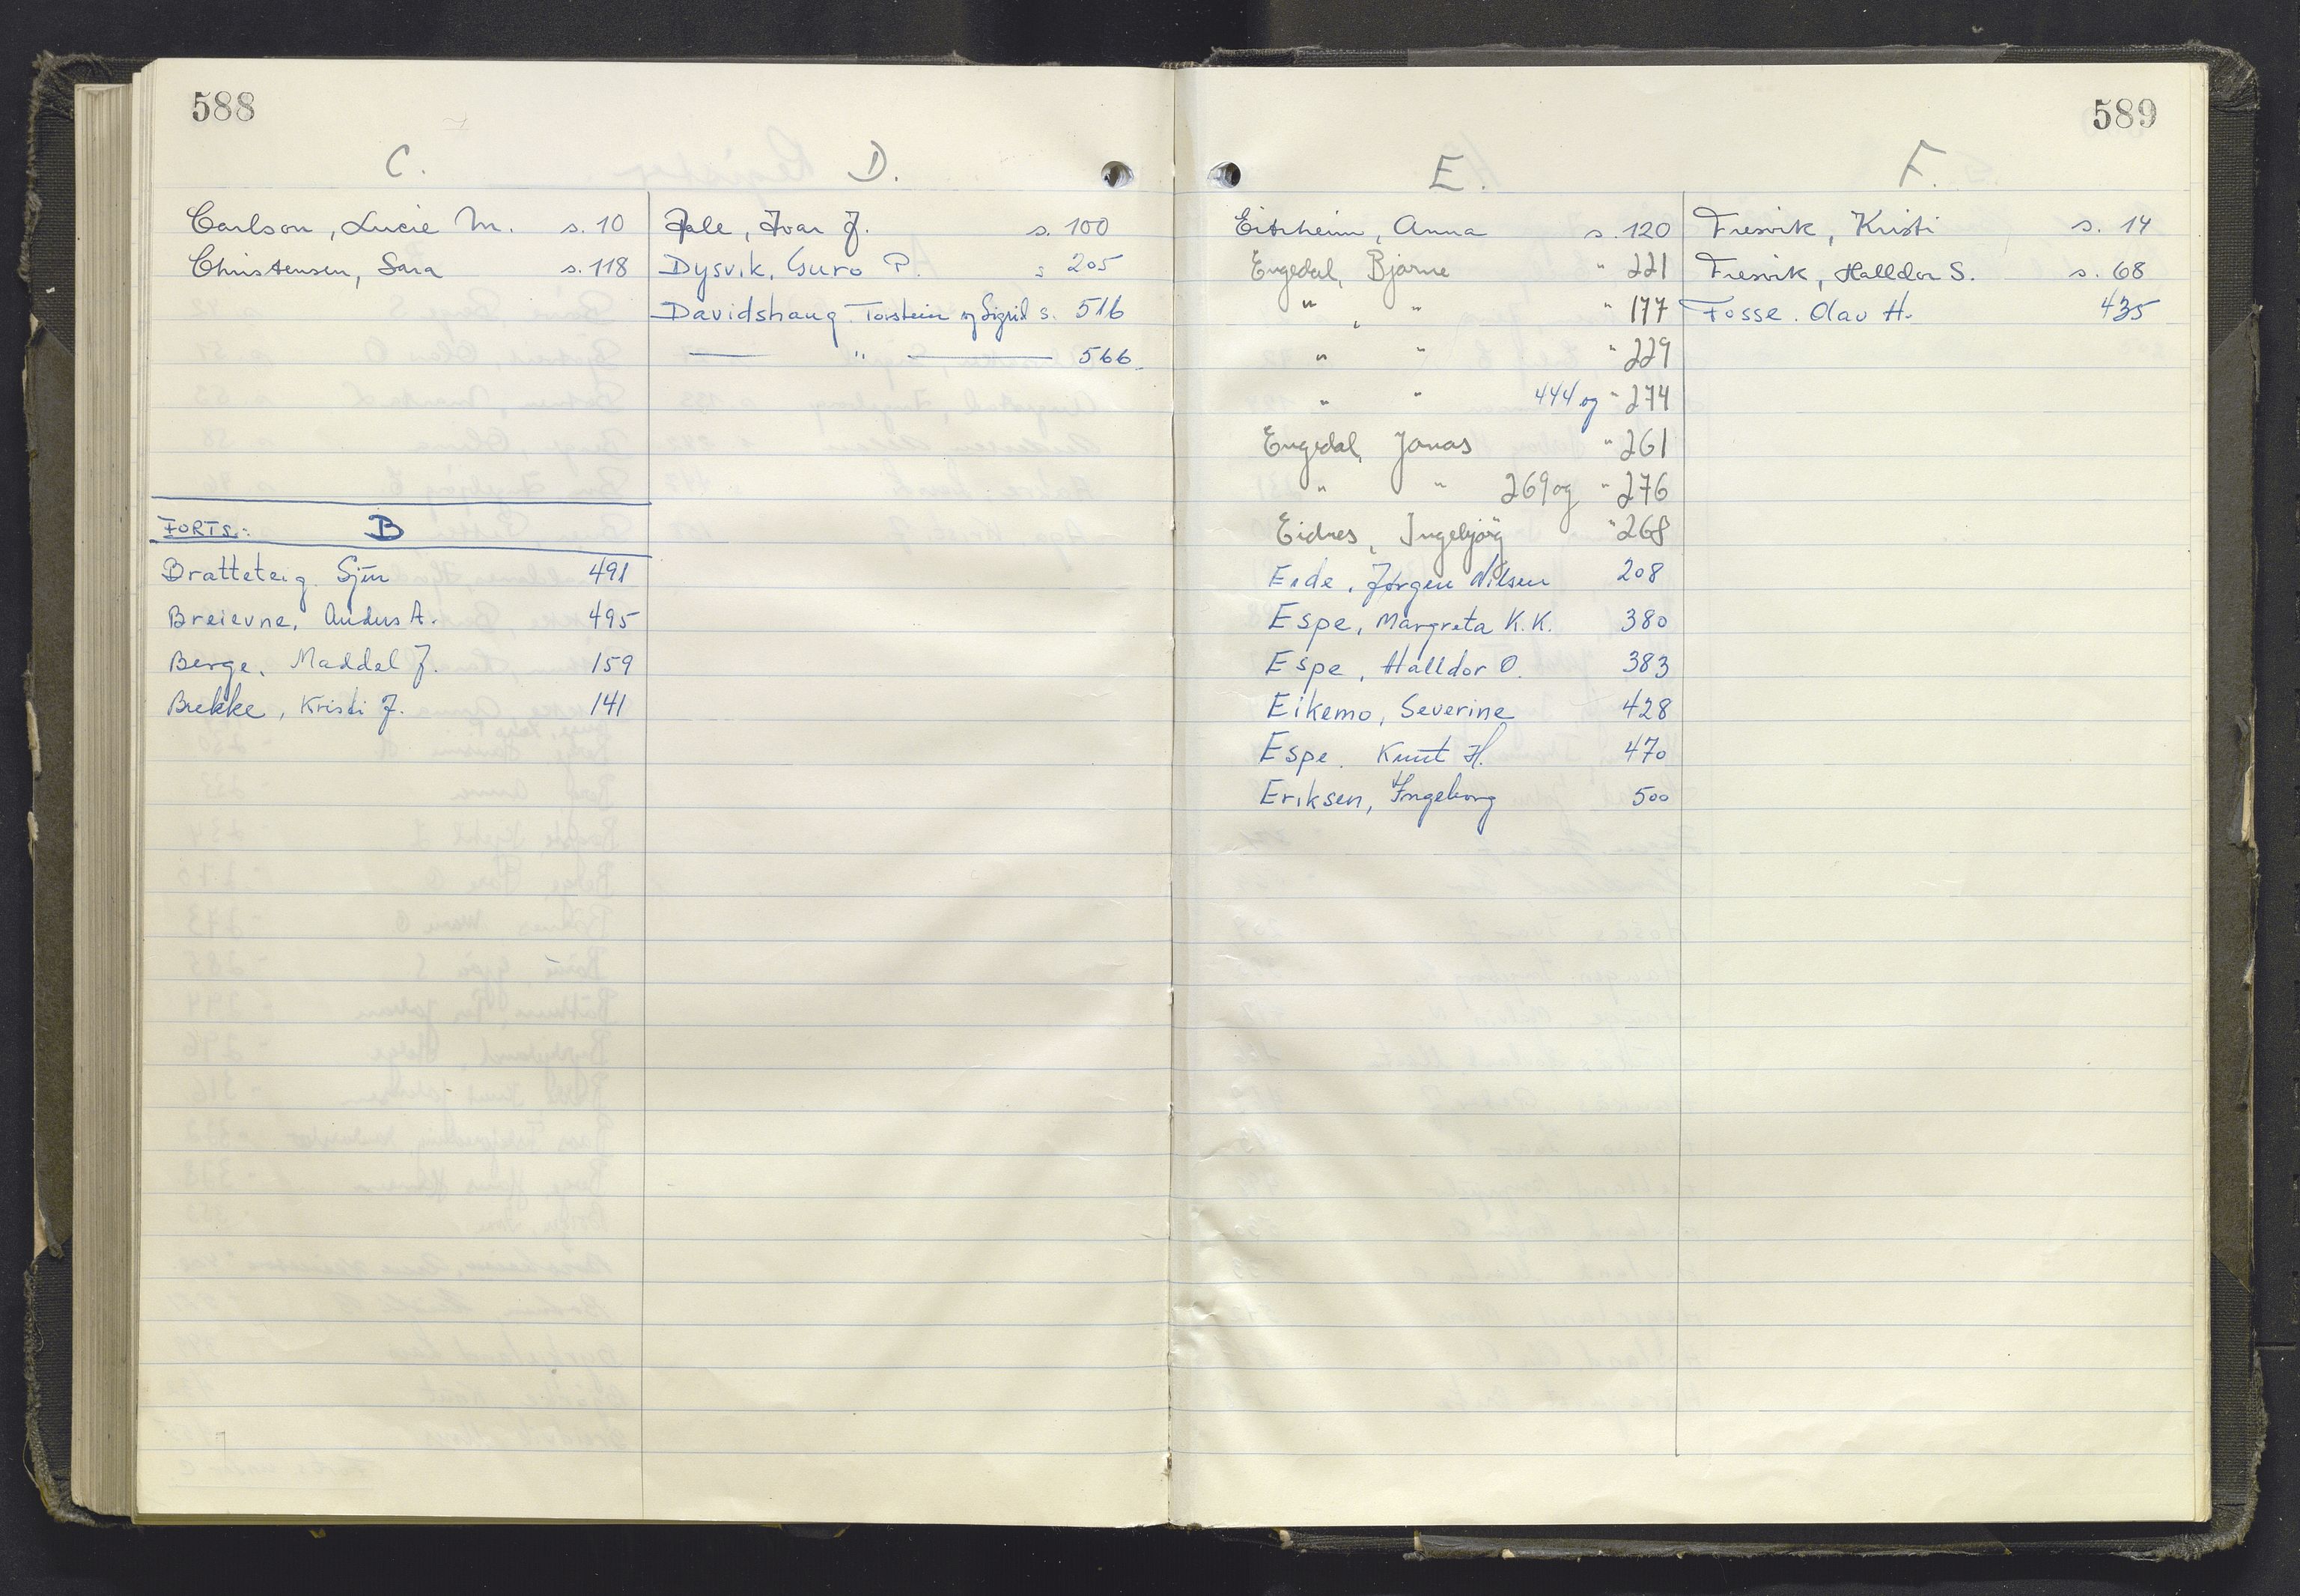 588
C.
Carlson, Lucie M. s. 10
Christensen, Sara s. 118
FORTS.: B
Bratteteig. Sjur 491
Breievne, Anders A. 495
Berge, Maddel J. 159
Brekke, Kristi J. 141
D.
Dale, Ivar J. s. 100
Dysvik, Guro P. s 205
Davidshaug. Torstein og Sigrid s. 516
— " — 566.
589
E.
Eitrheim, Anna s. 120
Engedal, Bjarne " 221
" , " " 177
" " " 229
" " 444 og " 274
Engedal, Jonas " 261
" " 269 og " 276
Eidnes, Ingebjörg " 268
Eide, Jørgen Nilsen 208
Espe, Margreta K.K. 380
Espe, Halldor O. 383
Eikemo, Severine 428
Espe. Knut H. 470
Eriksen, Ingeborg 500
F.
Fresvik, Kristi s. 14
Fresvik, Halldor S. s. 68
Fosse. Olav H. 435